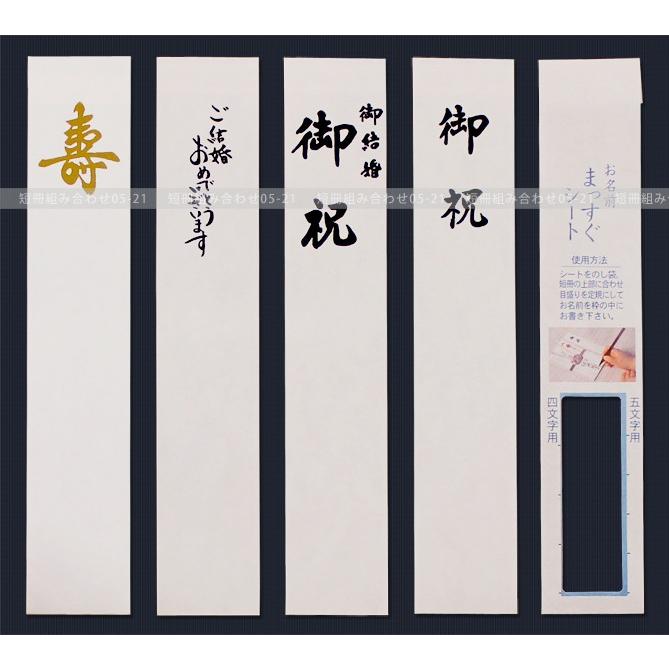 壽
ご結婚
おめでとう
ございます
御結婚
御祝
御祝
お名前
まっすぐ
シート
使用方法
シートをのし袋、
短冊の上部に合わせ
目盛りを定規にして
お名前を枠の中に
お書き下さい。
四文字用
五文字用
短冊組み合わせ05-21
短冊組み合わせ05-21
短冊組み合わせ05-21
短冊組み合わせ05-21
短冊組み